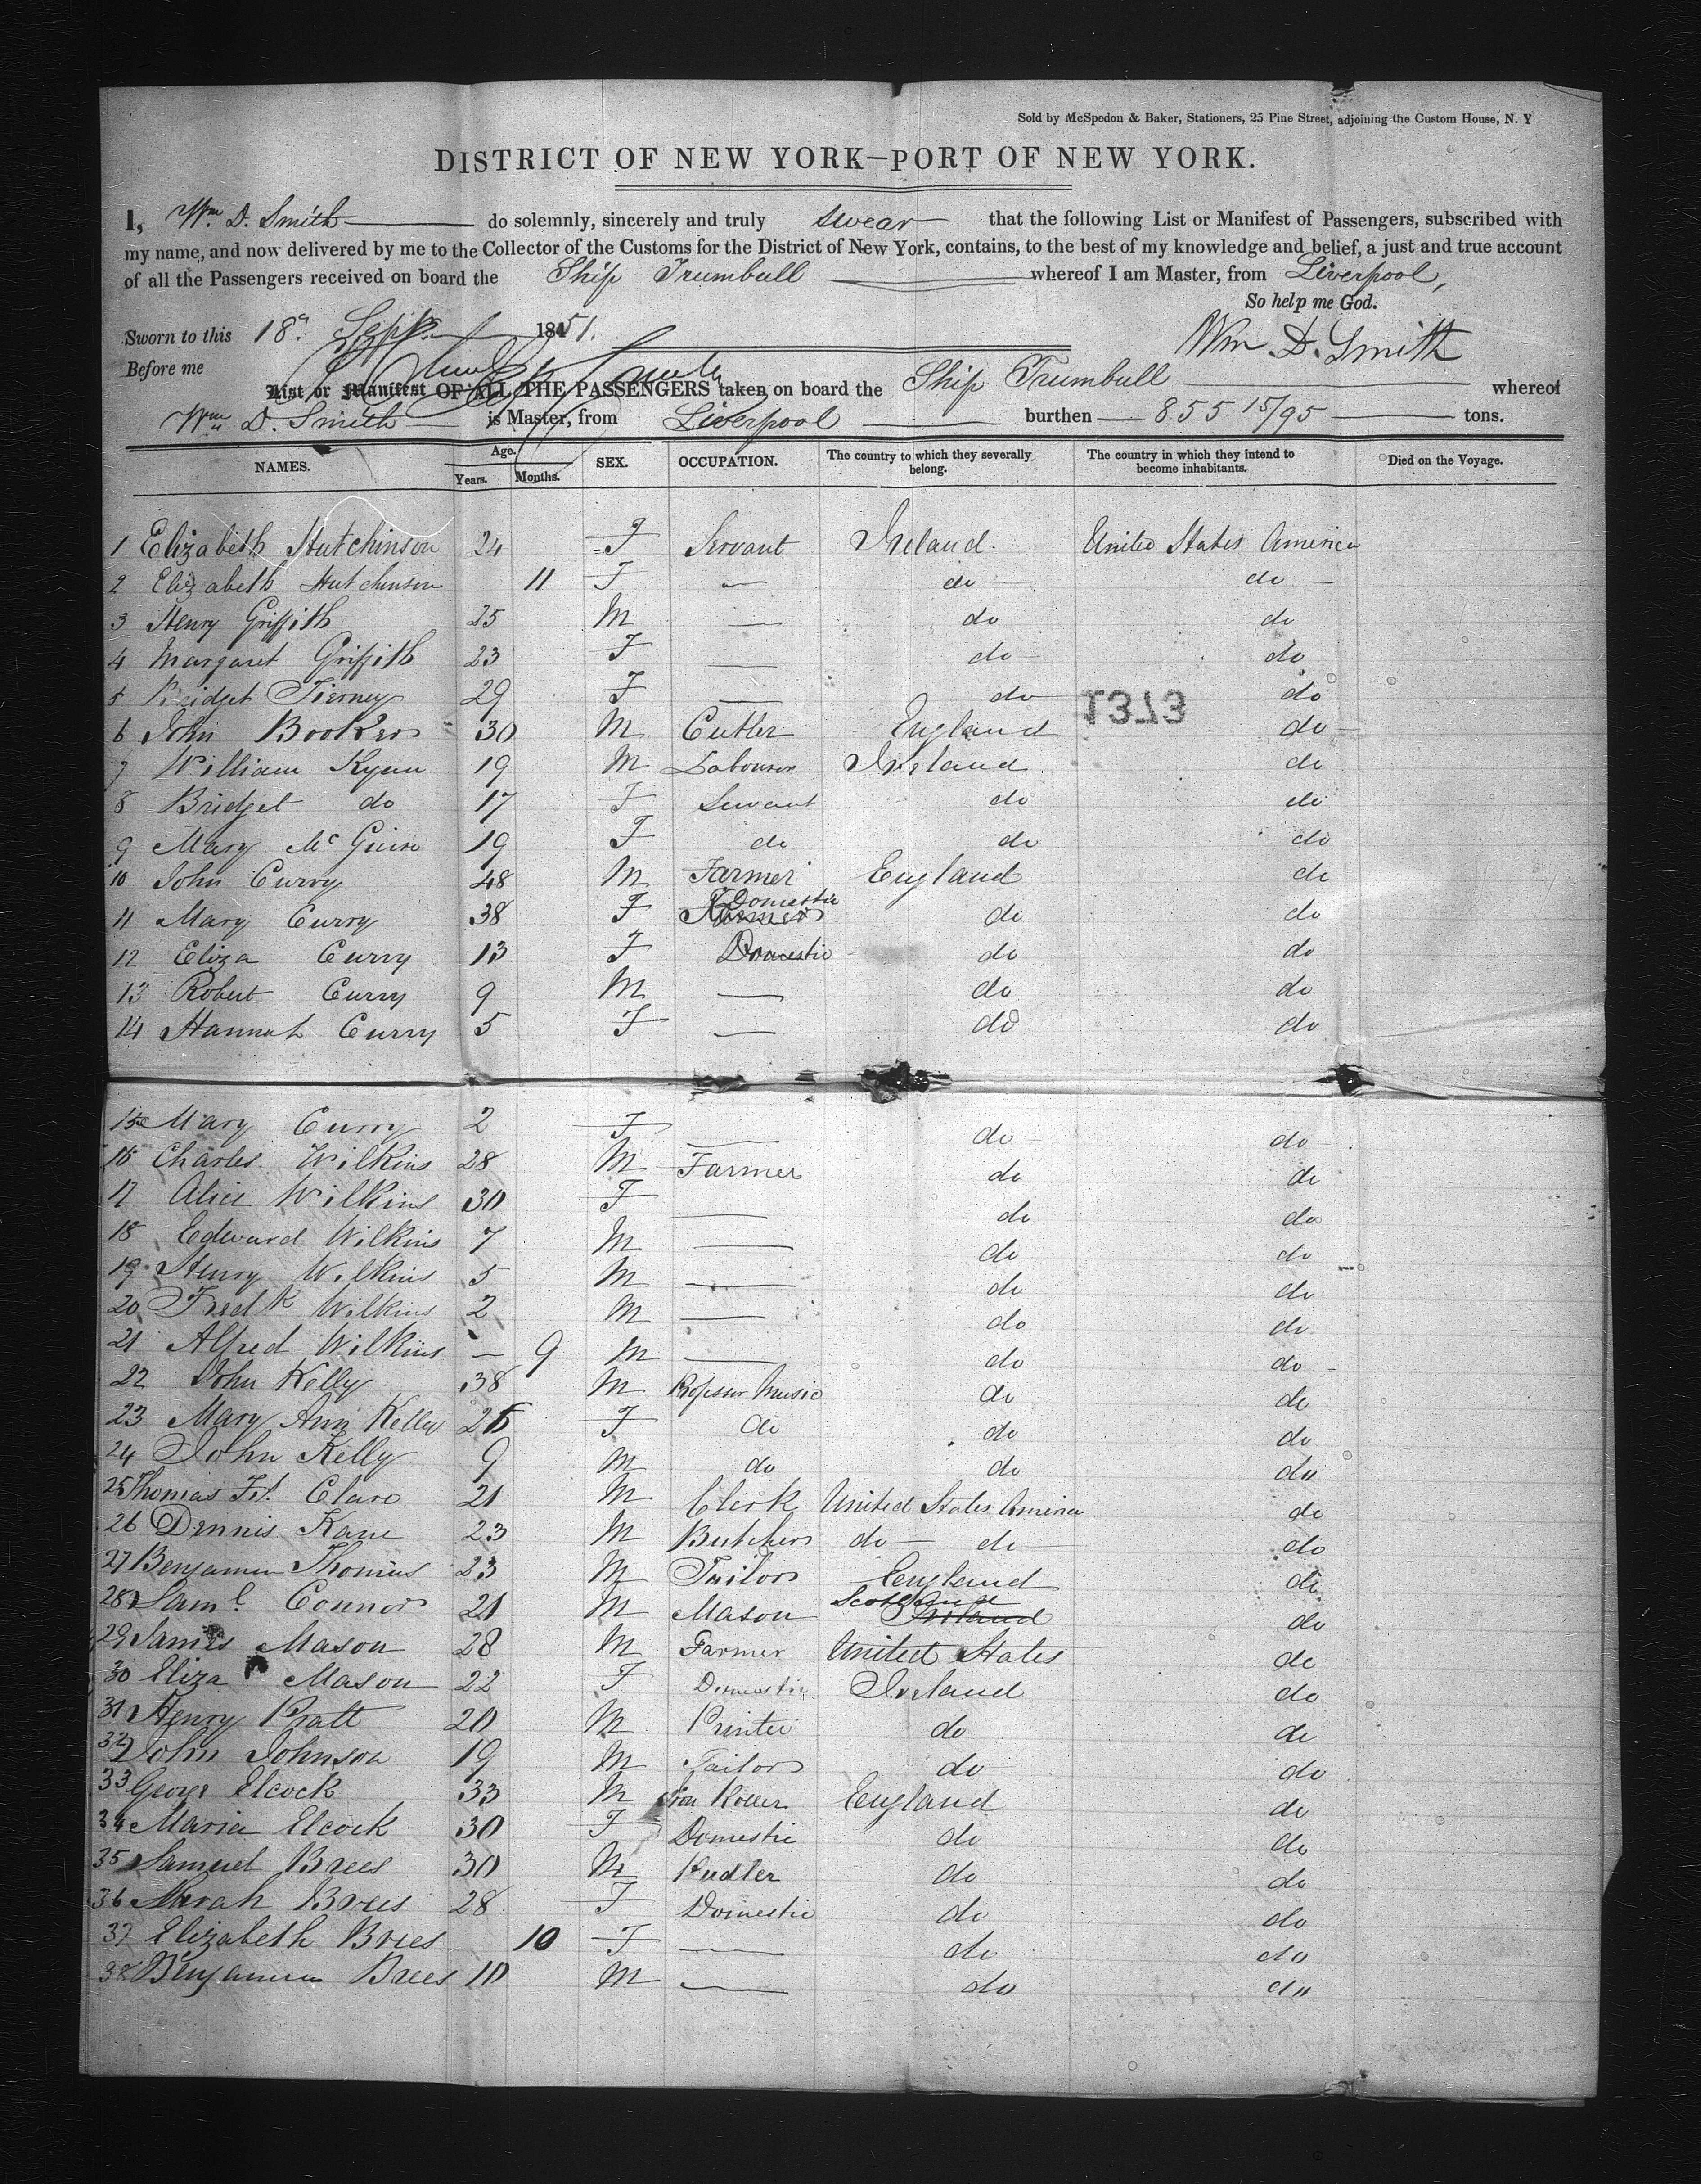 Sold by McSpedon & Baker, Stationers, 25 Pine Street, adjoining the Custom House, N. Y
DISTRICT OF NEW YORK—PORT OF NEW YORK.
I, Wm D. Smith do solemnly, sincerely and truly swear that the following List or Manifest of Passengers, subscribed with
my name, and now delivered by me to the Collector of the Customs for the District of New York, contains, to the best of my knowledge and belief, a just and true account
of all the Passengers received on board the Ship Trumbull whereof I am Master, from Liverpool,
So help me God.
Sworn to this 18 Sept 1851.
Wm D. Smith
Before me
List or Manifest OF ALL THE PASSENGERS taken on board the Ship Trumbull whereof
Wm D. Smith is Master, from Liverpool burthen 855 15/95 tons.
NAMES. Age. Years. Months. SEX. OCCUPATION. The country to which they severally belong. The country in which they intend to become inhabitants. Died on the Voyage.
1 Elizabeth Hutchinson 24 F Servant Ireland United States America
2 Elizabeth Hutchinson 11 F — do do
3 Henry Griffith 25 M — do do
4 Margaret Griffith 23 F — do do
5 Bridget Tierney 29 F — do 1373 do
6 John Bookers 30 M Cutler England do
7 William Ryan 19 M Labourer Ireland do
8 Bridget do 17 F Servant do do
9 Mary McGuire 19 F do do do
10 John Curry 48 M Farmer England do
11 Mary Curry 38 F Domestic do do
12 Eliza Curry 13 F Domestic do do
13 Robert Curry 9 M — do do
14 Hannah Curry 5 F — do do
15 Mary Curry 2 F — do do
16 Charles Wilkins 28 M Farmer do do
17 Alice Wilkins 30 F — do do
18 Edward Wilkins 7 M — do do
19 Henry Wilkins 5 M — do do
20 Fredk Wilkins 2 M — do do
21 Alfred Wilkins — 9 M — do do
22 John Kelly 38 M Professor Music do do
23 Mary Ann Kelly F do do do
24 John Kelly 9 M do do do
25 Thomas Clare 21 M Clerk United States America do
26 Dennis Kane 23 M Butcher do do do
27 Benjamin Thomas 23 M Tailor England do
28 Saml Connor 21 M Mason Scotland Ireland do
29 James Mason 28 M Farmer United States do
30 Eliza Mason 22 F Domestic Ireland do
31 Henry Pratt 20 M Printer do do
32 John Johnson 19 M Tailor do do
33 George Elcock 33 M Iron Roller England do
34 Maria Elcock 30 F Domestic do do
35 Samuel Brees 30 M Pudler do do
36 Sarah Brees 28 F Domestic do do
37 Elizabeth Brees 10 F — do do
38 Benjamin Brees 10 M — do do